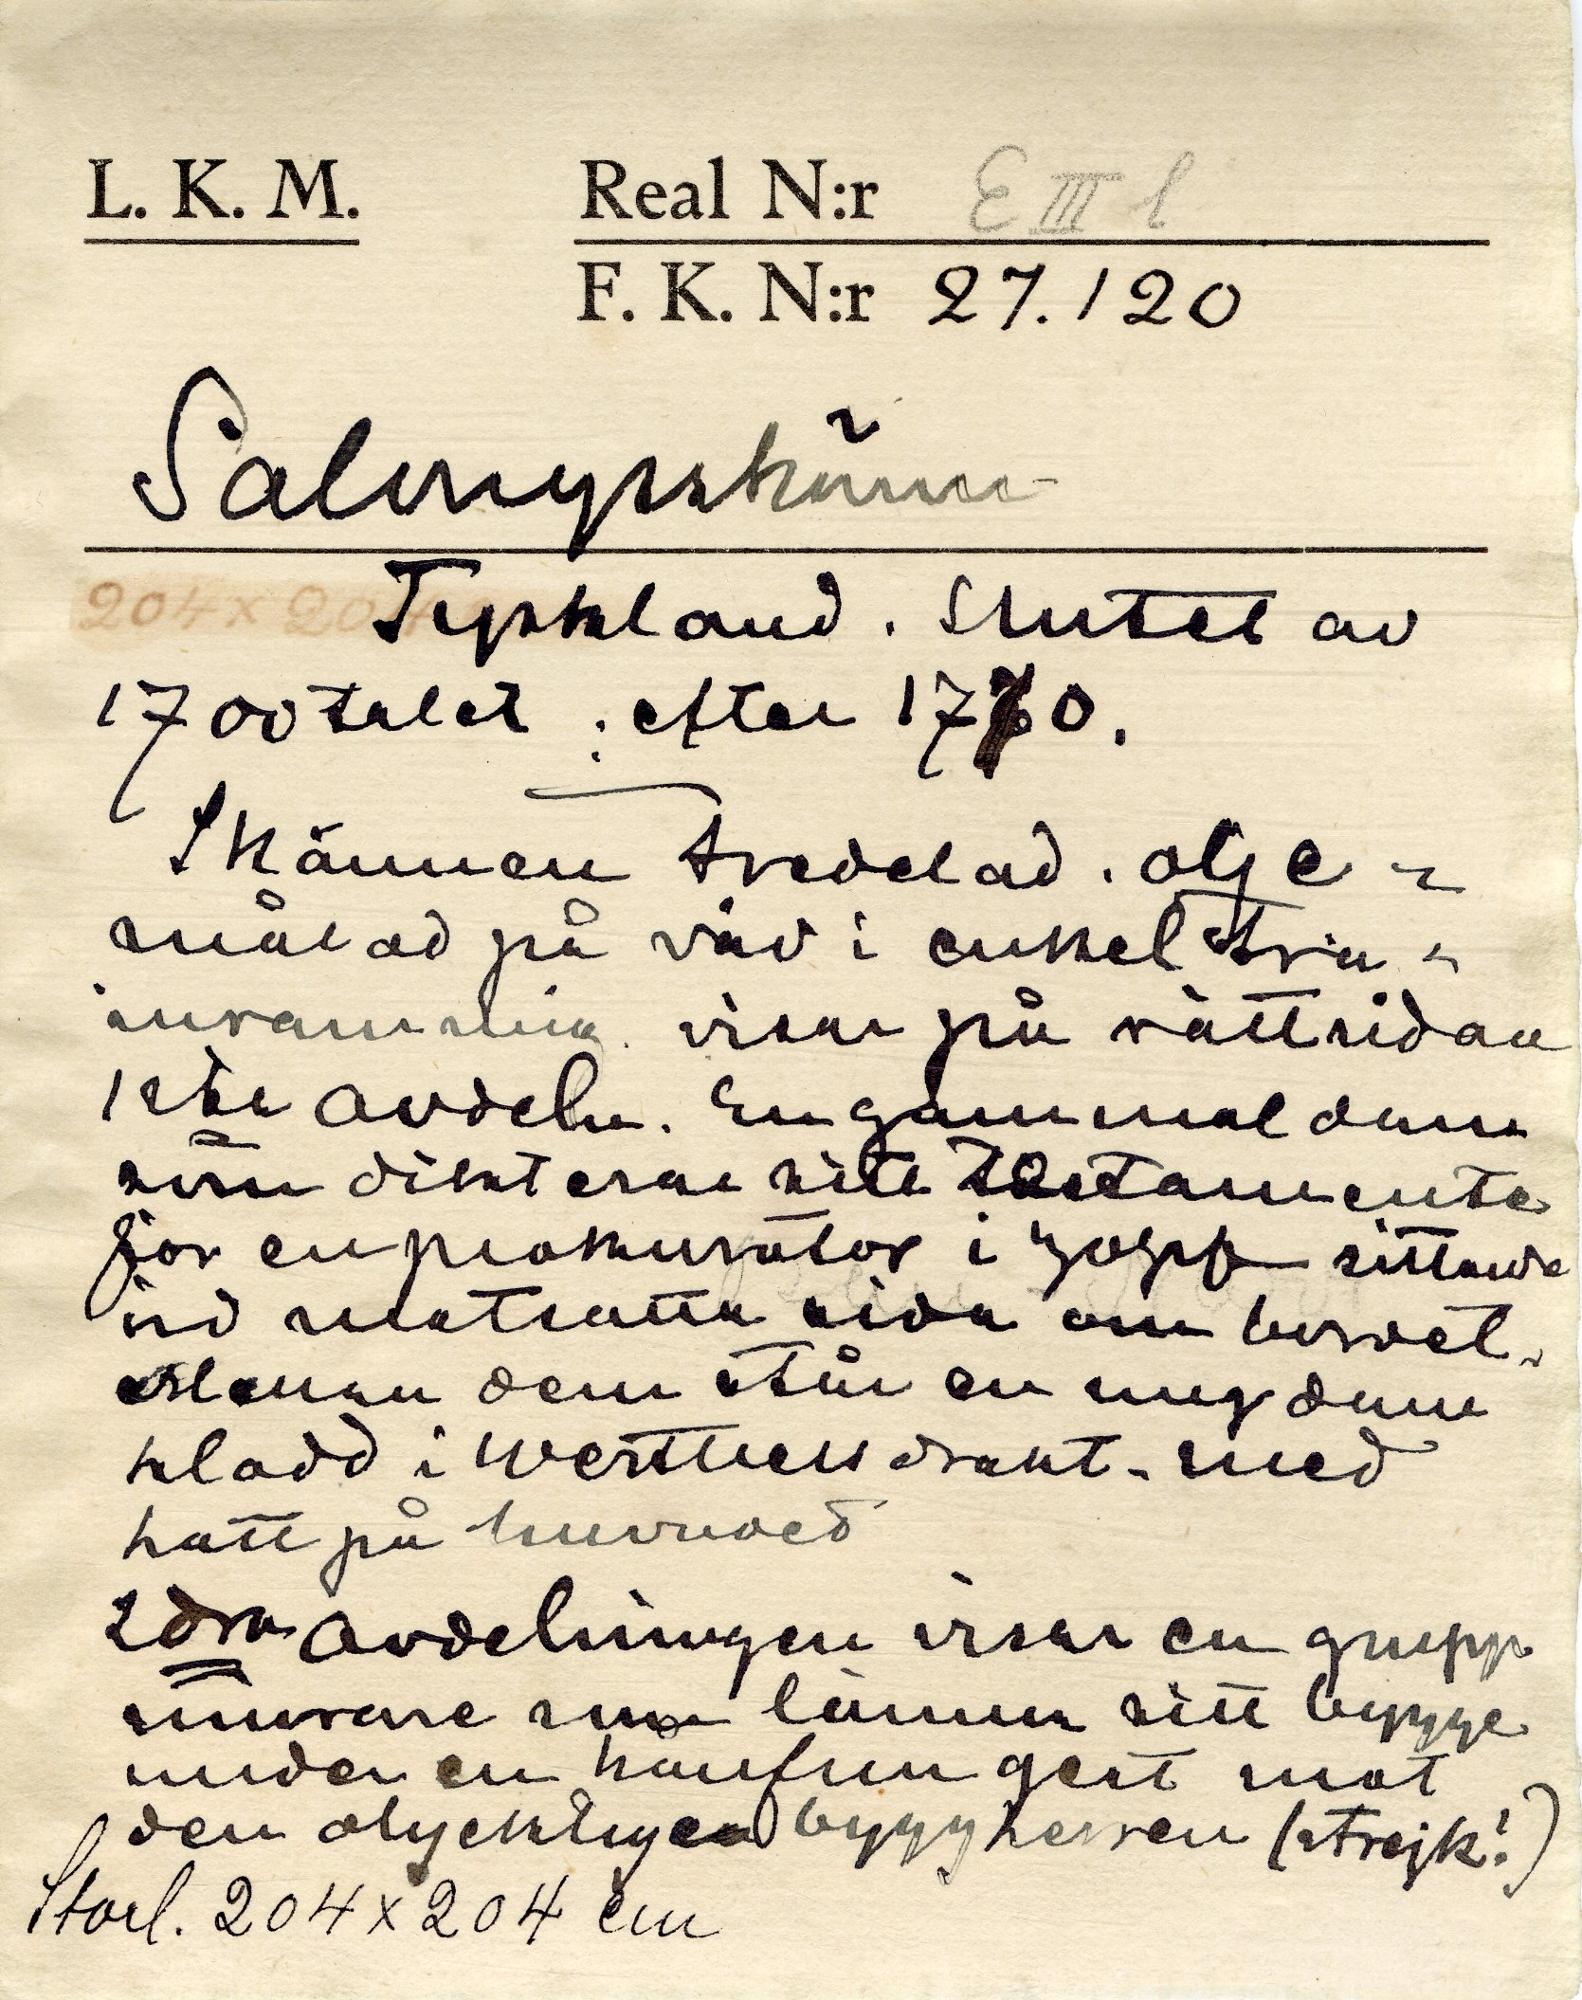 L. K. M.
Real N:r E III l
F. K. N:r 27.120
Salongsskärm
204 x 204
Tyskland. Slutet av
1700talet : efter 1770.
Skärmen tredelad. olje-
målad på väv i enkel trä-
inramning. visar på rättsidan
1sta avdeln. En gammal dam
som dikterar sitt testamente
för en prokurator i zopf sittande
vid motsatta sida om bordet.
Mellan dem står en ung dam
klädd i Werthers drakt. med
hatt på huvudet
2dra avdelningen visar en grupp
murare som lämna sitt bygge
under en hånfun gest mot
den olycklige byggherren (strejk!)
Storl. 204 x 204 cm